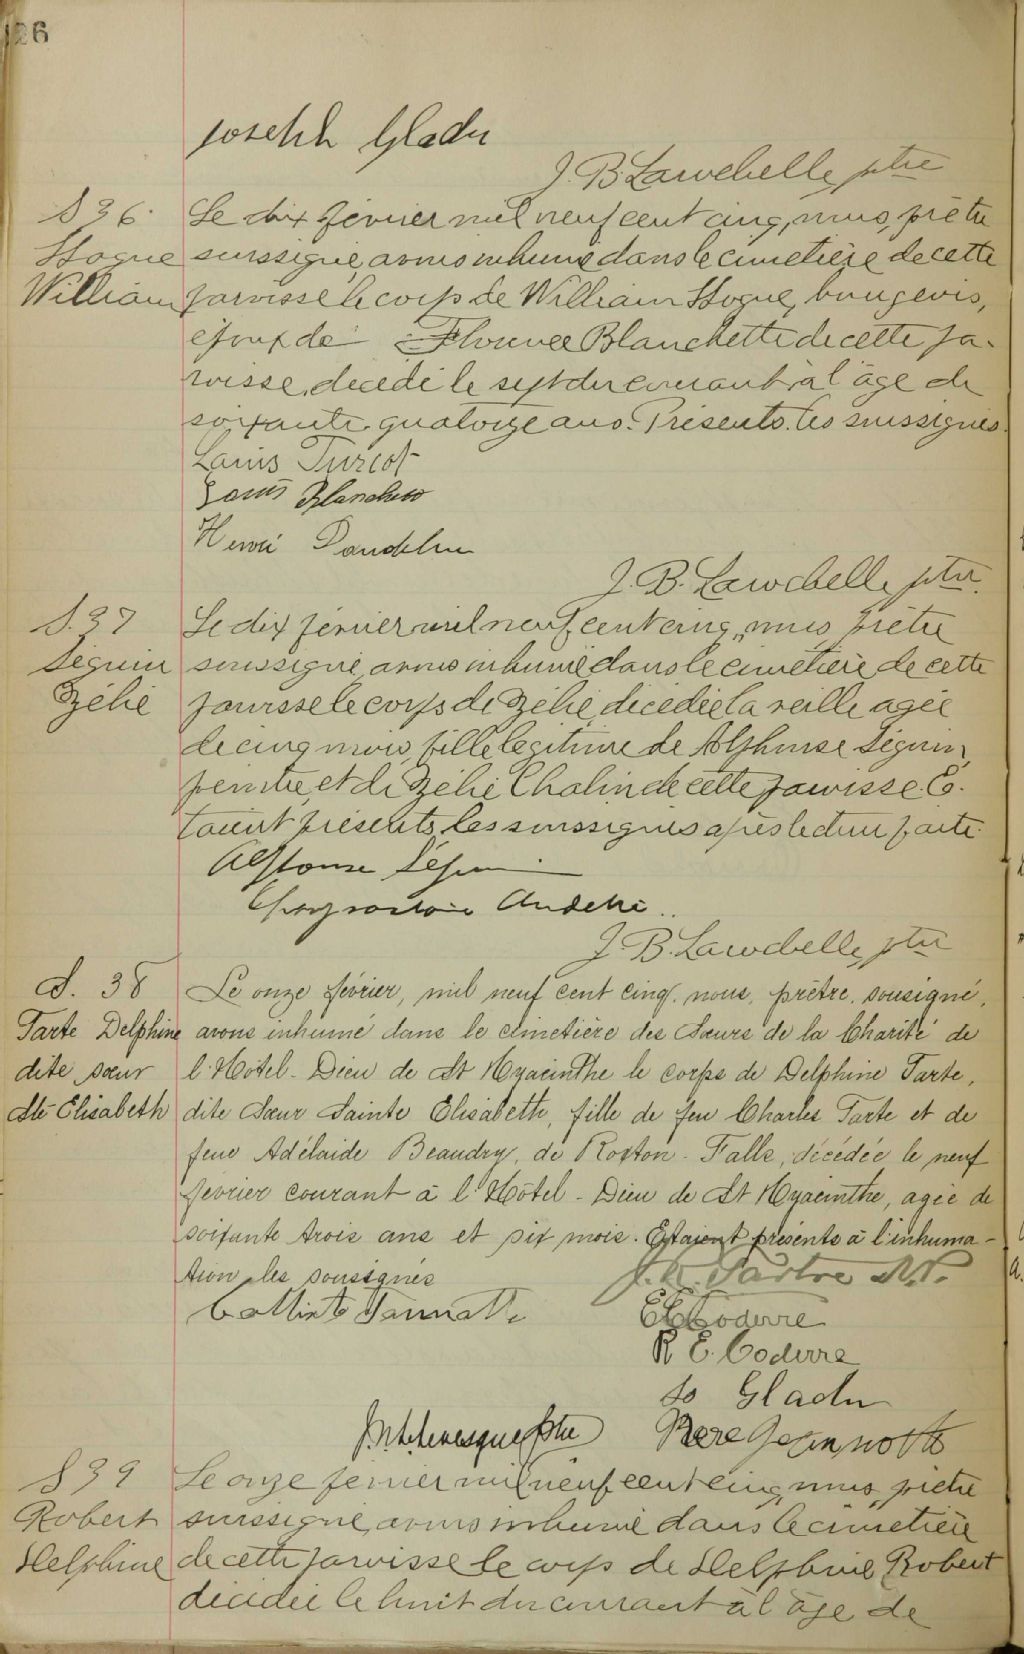 126
Joseph Gladu
J. B. Larochelle, ptre
S 36.
Hogue
William
Le dix février mil neuf cent cinq, nous, prêtre
soussigné, avons inhumé dans le cimetière de cette
paroisse le corps de William Hogue, bourgeois,
époux de Florence Blanchette de cette pa-
roisse, décédé le sept du courant à l'âge de
soixante quatorze ans. Présents les soussignés.
Louis Turcot
Louis Blanchette
Henri Dandelin
J. B. Larochelle, ptre.
S. 37
Séguin
Zélie
Le dix février mil neuf cent cinq, nous, prêtre
soussigné, avons inhumé dans le cimetière de cette
paroisse le corps de Zélie, décédée la veille agée
de cinq mois, fille légitime de Alphonse Séguin,
peintre, et de Zélie Chalin de cette paroisse. E-
taient présents les soussignés après lecture faite.
Alphonse Séguin
J. B. Larochelle, ptre
S. 38
Tarte Delphine
dite sœur
Ste Elisabeth
Le onze février, mil neuf cent cinq, nous, prêtre, sousigné,
avons inhumé dans le cimetière des Sœurs de la Charité de
l'Hôtel-Dieu de St Hyacinthe le corps de Delphine Tarte,
dite Sœur Sainte Elisabeth, fille de feu Charles Tarte et de
feue Adélaide Beaudry, de Roxton-Falls, décédée le neuf
février courant à l'Hôtel-Dieu de St Hyacinthe, agée de
soixante trois ans et six mois. Etaient présents à l'inhuma-
tion les sousignés
J. R. Tartre N.P.
E E Coderre
R E. Coderre
Jo Gladu
Levesque Ptre
Pierre Jeannotte
S 39
Robert
Delphine
Le onze février mil neuf cent cinq, nous, prêtre
soussigné, avons inhumé dans le cimetière
de cette paroisse le corps de Delphine Robert
décédée le huit du courant à l'âge de